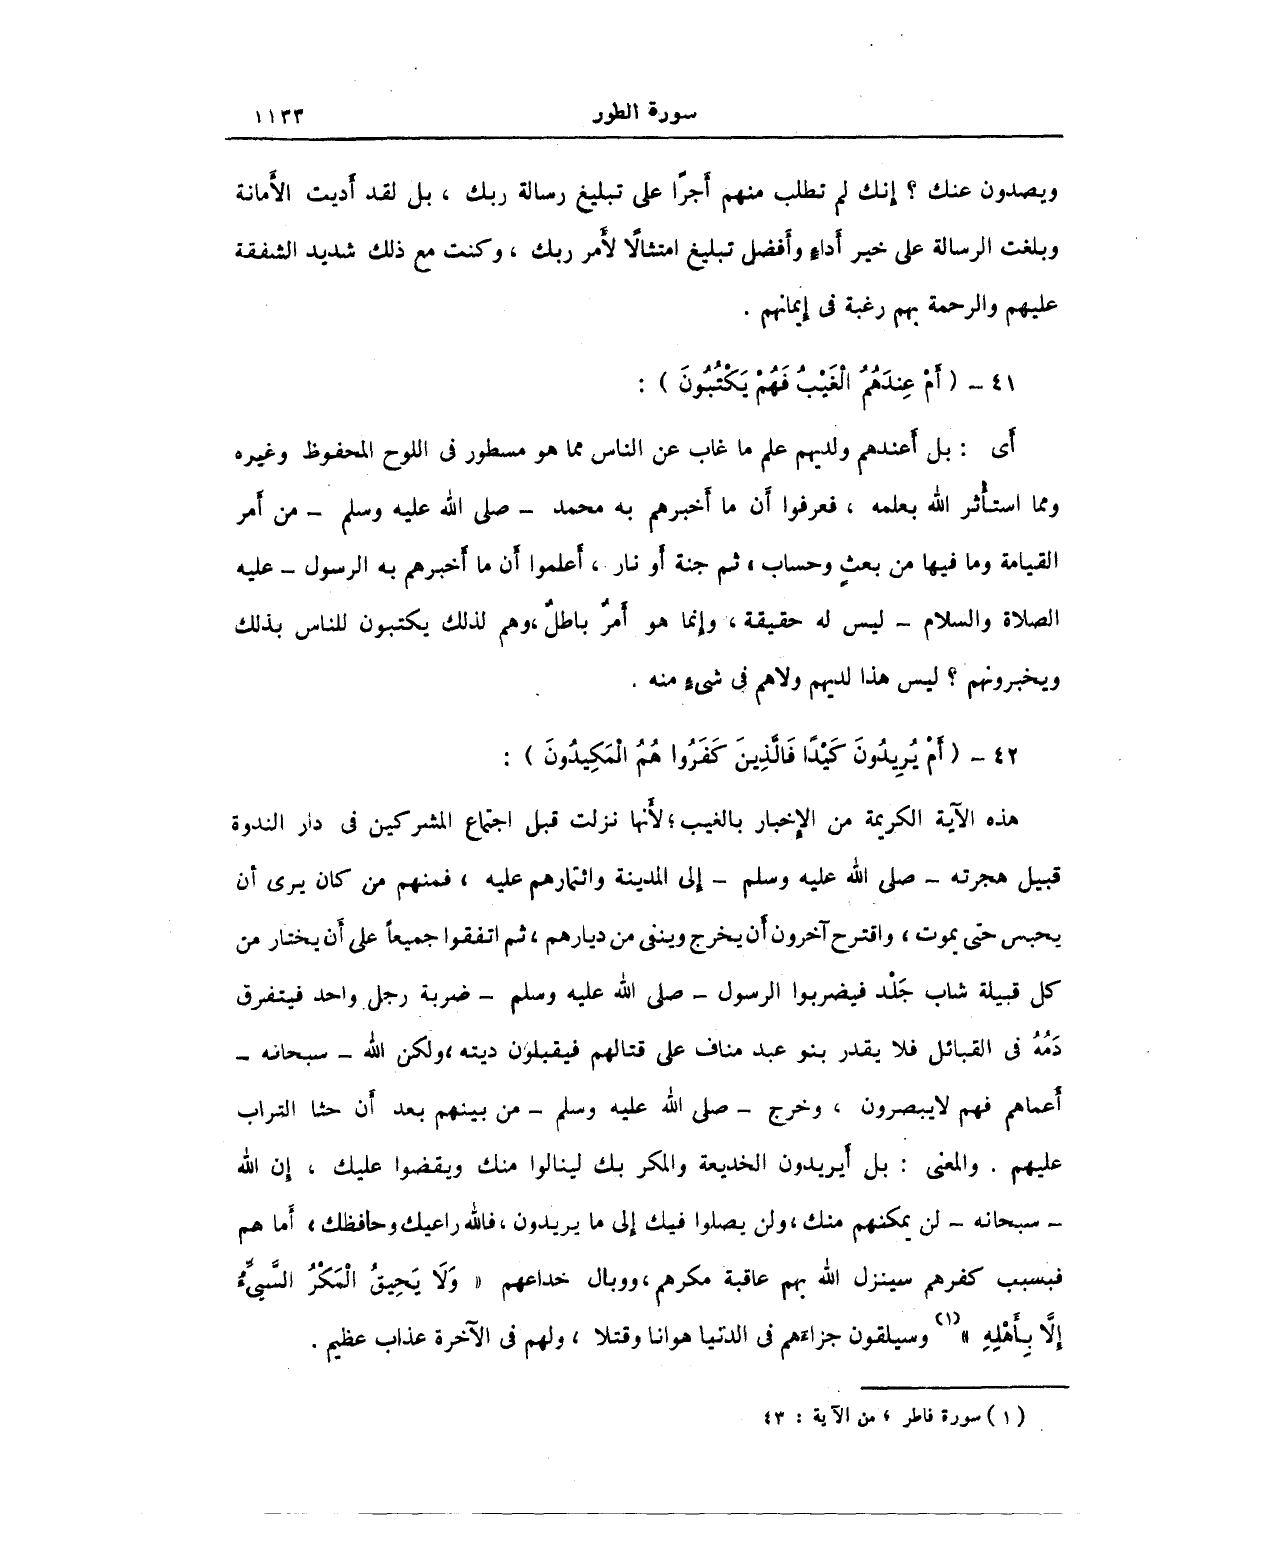 سورة الطور ١١٣٣
ويصدون عنك ؟ إنك لم تطلب منهم أَجرًا على تبليغ رسالة ربك ، بل لقد أَديت الأَمانة
وبلغت الرسالة على خير أَداءٍ وأَفضل تبليغ امتثالًا لأَمر ربك ، وكنت مع ذلك شديد الشفقة
عليهم والرحمة بهم رغبة فى إيمانهم .
٤١ – ( أَمْ عِندَهُمُ الْغَيْبُ فَهُمْ يَكْتُبُونَ ) :
أَى : بل أَعندهم ولديهم علم ما غاب عن الناس مما هو مسطور فى اللوح المحفوظ وغيره
ومما استأْثر الله بعلمه ، فعرفوا أَن ما أَخبرهم به محمد – صلى الله عليه وسلم – من أَمر
القيامة وما فيها من بعثٍ وحساب ، ثم جنة أَو نار ، أَعلموا أَن ما أَخبرهم به الرسول – عليه
الصلاة والسلام – ليس له حقيقة ، وإنما هو أَمرٌ باطلٌ ،وهم لذلك يكتبون للناس بذلك
ويخبرونهم ؟ ليس هذا لديهم ولاهم فى شىءٍ منه .
٤٢ – ( أَمْ يُرِيدُونَ كَيْدًا فَالَّذِينَ كَفَرُوا هُمُ الْمَكِيدُونَ ) :
هذه الآية الكريمة من الإِخبار بالغيب ؛لأَنها نزلت قبل اجتماع المشركين فى دار الندوة
قبيل هجرته – صلى الله عليه وسلم – إلى المدينة وائتمارهم عليه ، فمنهم من كان يرى أن
يحبس حتى يموت ، واقترح آخرون أَن يخرج وينفى من ديارهم ، ثم اتفقوا جميعاً على أَن يختار من
كل قبيلة شاب جَلْد فيضربوا الرسول – صلى الله عليه وسلم – ضربة رجل واحد فيتفرق
دَمُهُ فى القبائل فلا يقدر بنو عبد مناف على قتالهم فيقبلون ديته ،ولكن الله – سبحانه –
أَعماهم فهم لايبصرون ، وخرج – صلى الله عليه وسلم – من بينهم بعد أَن حثا التراب
عليهم . والمعنى : بل أَيريدون الخديعة والمكر بك لينالوا منك ويقضوا عليك ، إن الله
– سبحانه – لن يمكنهم منك ،ولن يصلوا فيك إلى ما يريدون ،فالله راعيك وحافظك ، أما هم
فبسبب كفرهم سينزل الله بهم عاقبة مكرهم ،ووبال خداعهم « وَلَا يَحِيقُ الْمَكْرُ السَّيِّئُ
إِلَّا بِأَهْلِهِ » (١) وسيلقون جزاءَهم فى الدنيا هوانا وقتلا ، ولهم فى الآخرة عذاب عظيم .
(١) سورة فاطر ، من الآية : ٤٣